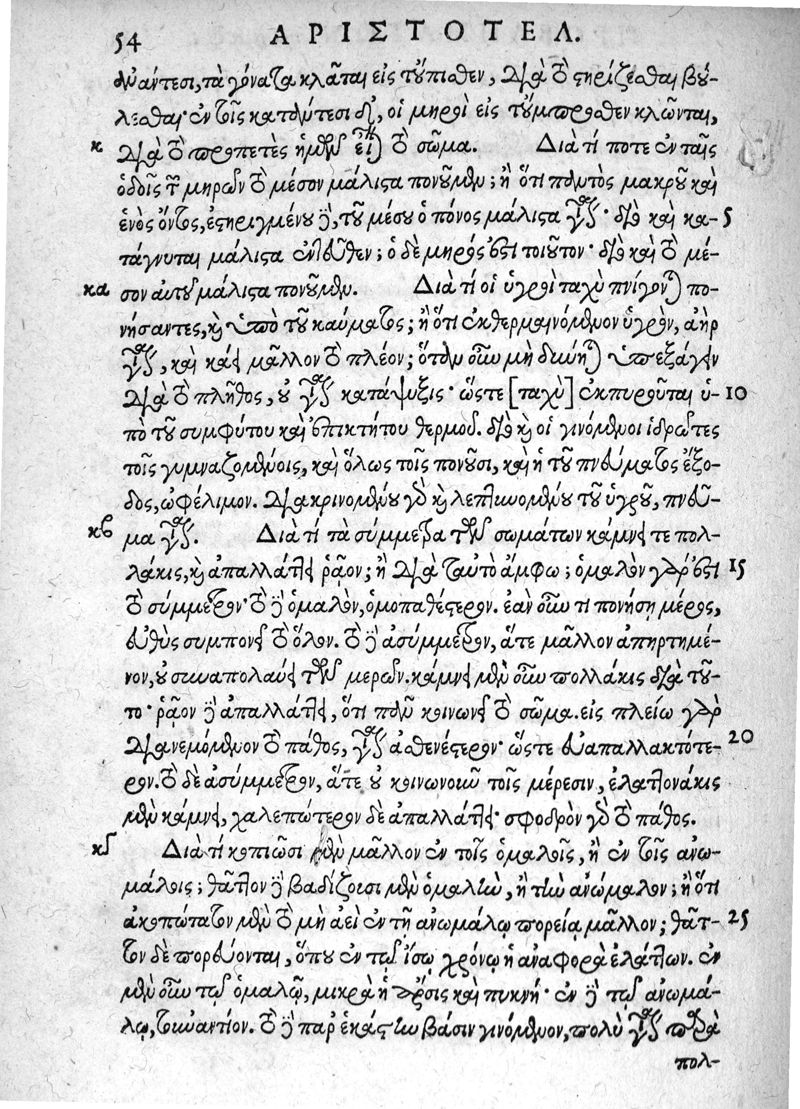 54 ΑΡΙΣΤΟΤΕΛ.
ἀνάντεσι, τὰ γόνατα κλᾶται εἰς τοὔπισθεν, διὰ τὸ στηρίζεσθαι βού-
λεσθαι· ἐν τοῖς κατάντεσι δὲ, οἱ μηροὶ εἰς τοὔμπροσθεν κλῶνται,
κ διὰ τὸ προπετὲς ἡμῶν εἶναι τὸ σῶμα. Διὰ τί ποτε ἐν ταῖς
ὁδοῖς τῶν μηρῶν τὸ μέσον μάλιστα πονοῦμεν; ἢ ὅτι παντὸς μακροῦ καὶ
ἑνὸς ὄντος, ἐστηριγμένου δὲ, τοῦ μέσου ὁ πόνος μάλιστα γίνεται· διὸ καὶ κα- 5
τάγνυται μάλιστα ἐντεῦθεν; ὁ δὲ μηρός ἐστι τοιοῦτον· διὸ καὶ τὸ μέ-
κα σον αὐτοῦ μάλιστα πονοῦμεν. Διὰ τί οἱ ὑγροὶ ταχὺ πνίγονται πο-
νήσαντες, καὶ ὑπὸ τοῦ καύματος; ἢ ὅτι ἐκθερμαινόμενον ὑγρὸν, ἀὴρ
γίνεται, καὶ καίει μᾶλλον τὸ πλέον; ὅταν οὖν μὴ δύνηται ὑπεξάγειν
διὰ τὸ πλῆθος, οὐ γίνεται κατάψυξις· ὥστε [ταχὺ] ἐκπυροῦται ὑ- 10
πὸ τοῦ συμφύτου καὶ ἐπικτήτου θερμοῦ. διὸ καὶ οἱ γινόμενοι ἱδρῶτες
τοῖς γυμναζομένοις, καὶ ὅλως τοῖς πονοῦσι, καὶ ἡ τοῦ πνεύματος ἔξο-
δος, ὠφέλιμον. διακρινομένου γὰρ καὶ λεπτυνομένου τοῦ ὑγροῦ, πνεῦ-
κβ μα γίνεται. Διὰ τί τὰ σύμμετρα τῶν σωμάτων κάμνει τε πολ-
λάκις, καὶ ἀπαλλάττει ῥᾷον; ἢ διὰ ταὐτὸ ἄμφω; ὁμαλὸν γάρ ἐστι 15
τὸ σύμμετρον· τὸ δὲ ὁμαλὸν, ὁμοπαθέστερον. ἐὰν οὖν τι πονήσῃ μέρος,
εὐθὺς συμπονεῖ τὸ ὅλον. τὸ δὲ ἀσύμμετρον, ἅτε μᾶλλον ἀπηρτημέ-
νον, οὐ συναπολαύει τῶν μερῶν. κάμνει μὲν οὖν πολλάκις διὰ τοῦ-
το· ῥᾷον δὲ ἀπαλλάττει, ὅτι πᾶν κοινωνεῖ τὸ σῶμα. εἰς πλείω γὰρ
διανεμόμενον τὸ πάθος, γίνεται ἀσθενέστερον· ὥστε εὐαπαλλακτότε- 20
ρον. τὸ δὲ ἀσύμμετρον, ἅτε οὐ κοινωνοῦν τοῖς μέρεσιν, ἐλαττονάκις
μὲν κάμνει, χαλεπώτερον δὲ ἀπαλλάττει· σφοδρὸν γὰρ τὸ πάθος.
κγ Διὰ τί κοπιῶσι μὲν μᾶλλον ἐν τοῖς ὁμαλοῖς, ἢ ἐν τοῖς ἀνω-
μάλοις; θᾶττον δὲ βαδίζουσι μὲν ὁμαλὴν, ἢ τὴν ἀνώμαλον; ἢ ὅτι
ἀκοπώτατον μὲν τὸ μὴ ἀεὶ ἐν τῇ ἀνωμάλῳ πορείᾳ μᾶλλον; θᾶτ- 25
τον δὲ πορεύονται, ὅπου ἐν τῷ ἴσῳ χρόνῳ ἡ ἀναφορὰ ἐλάττων. ἐν
μὲν οὖν τῷ ὁμαλῷ, μικρὰ ἡ ἄρσις καὶ πυκνή· ἐν δὲ τῷ ἀνωμά-
λῳ, τοὐναντίον. τὸ δὲ παρ' ἑκάστην βάσιν γινόμενον, πολὺ γίνεται παρὰ
πολ-